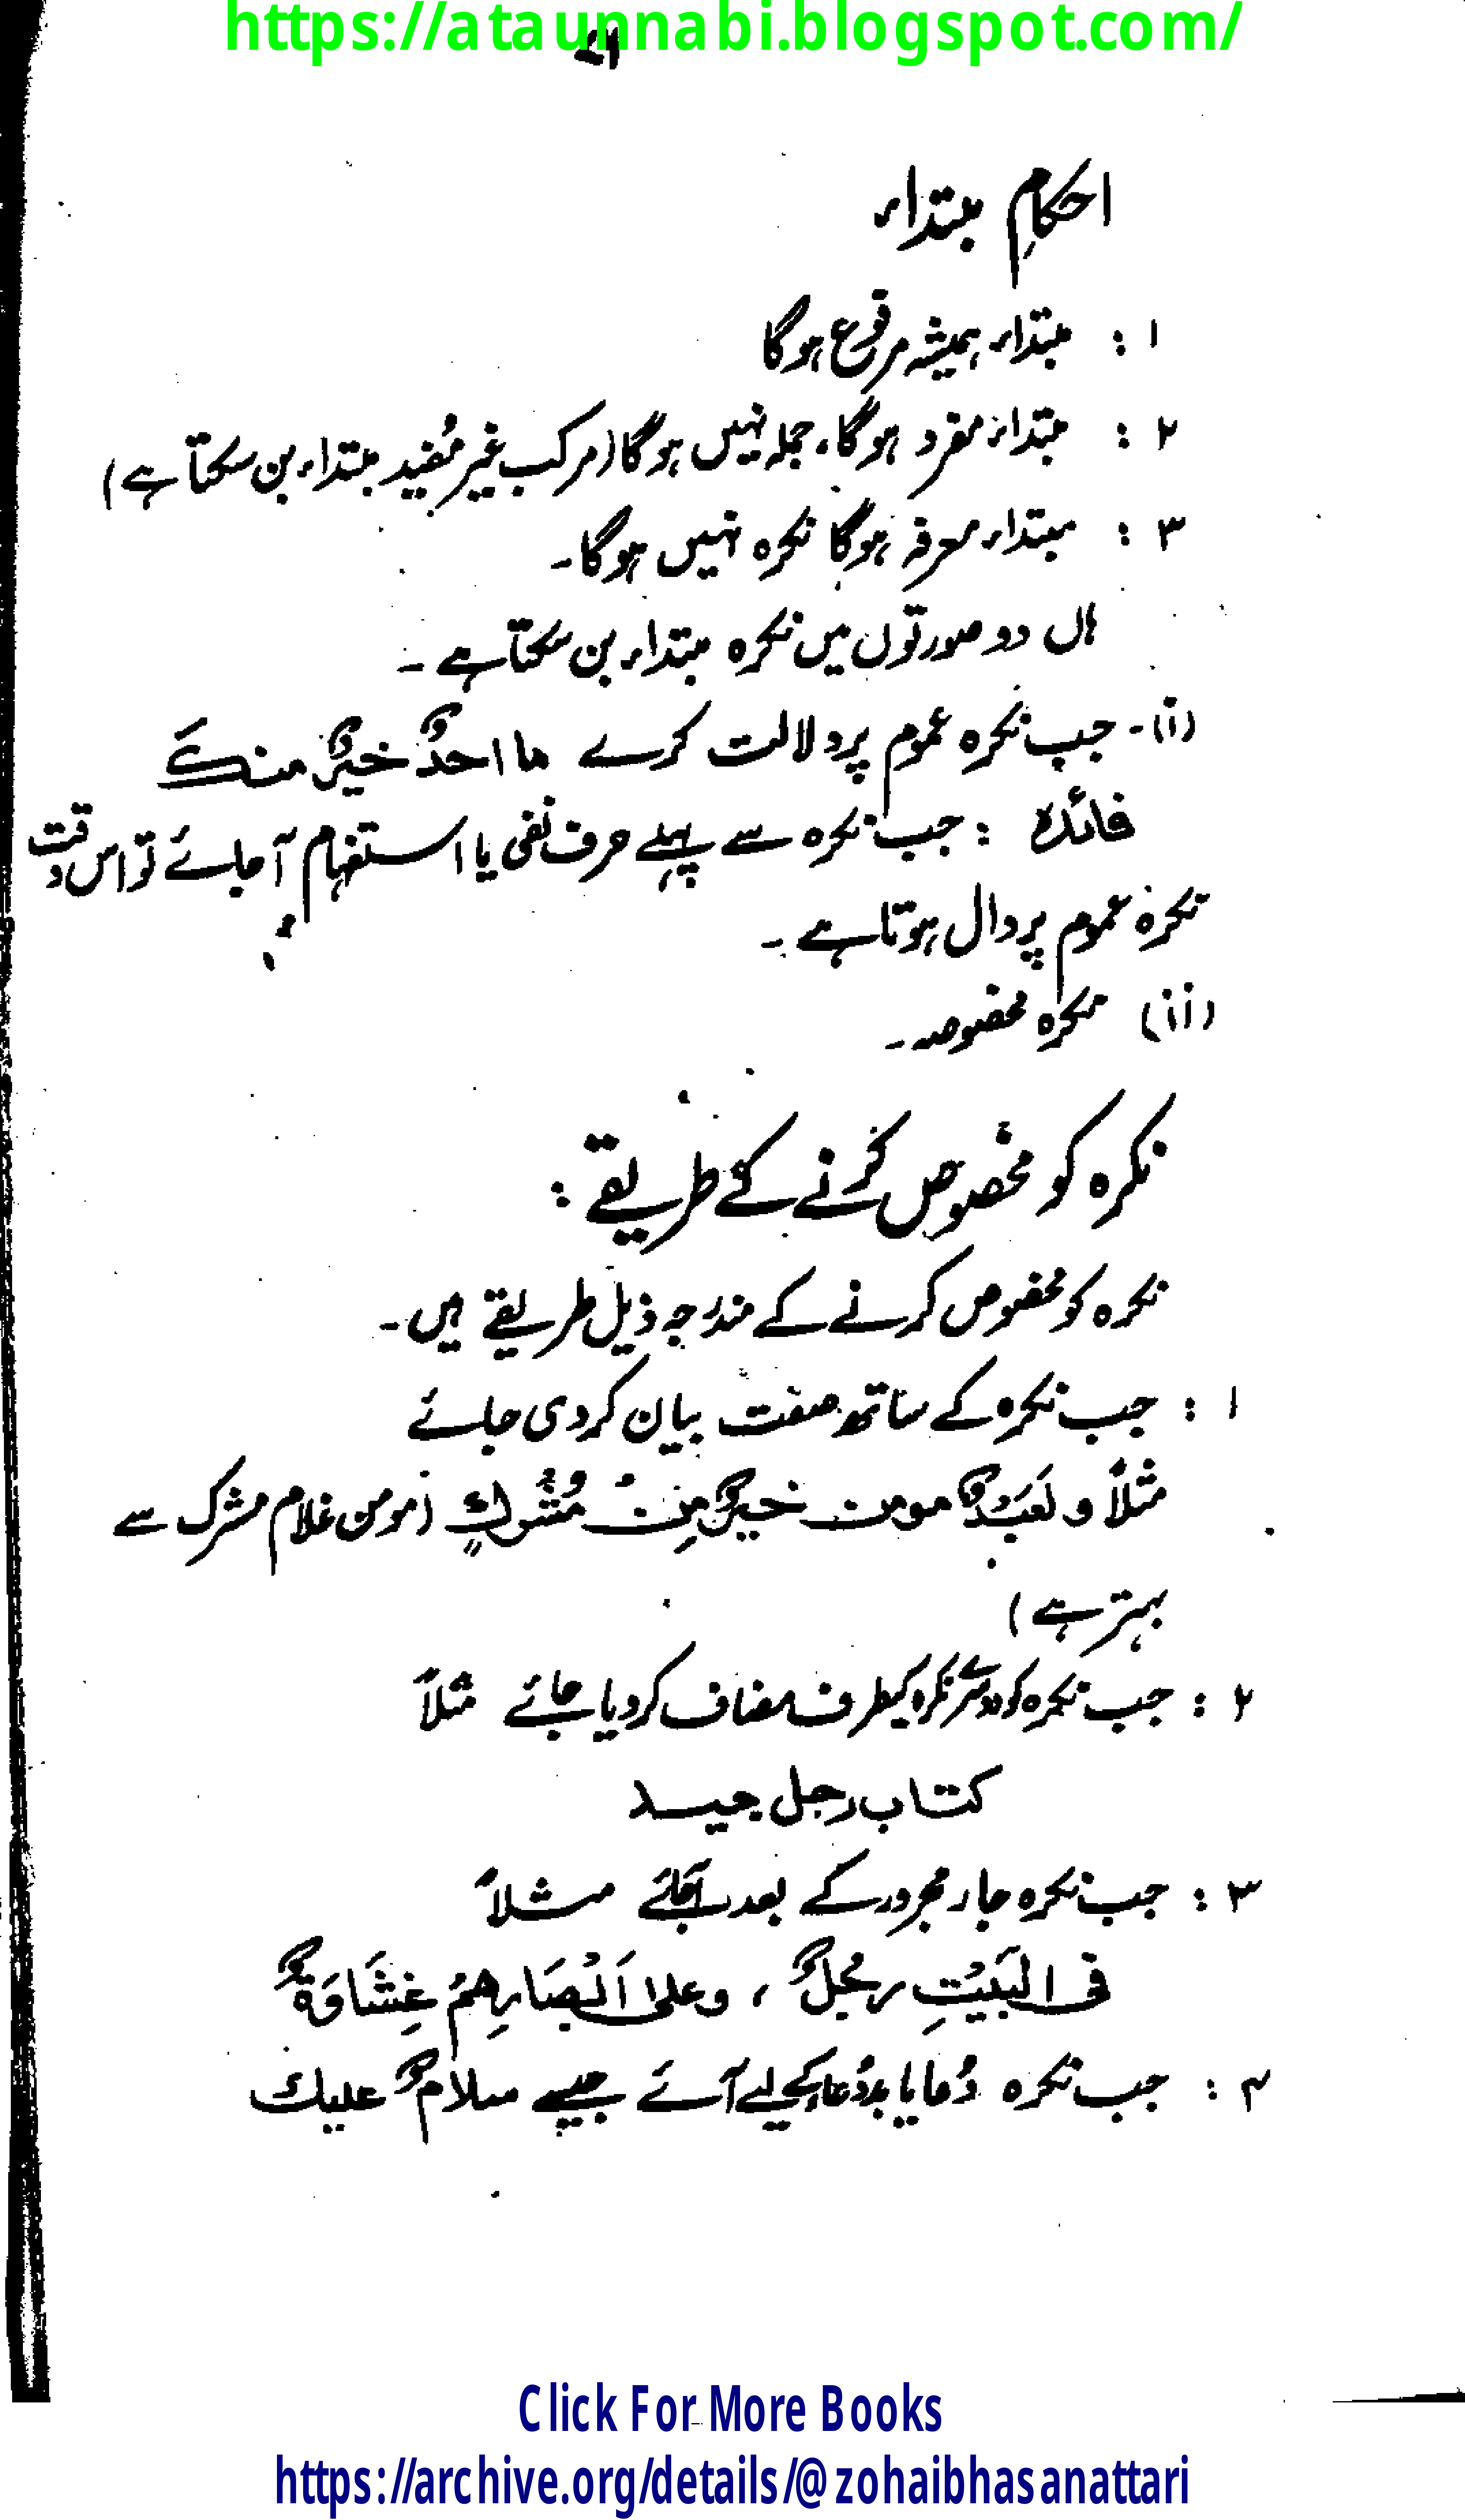 https://ataunnabi.blogspot.com/
احکامِ مبتداء
۱ : مبتداء ہمیشہ مرفوع ہوگا
۲ : مبتداء مفرد ہوگا، جملہ نہیں ہوگا (مرکب غیر مُفید مبتداء بن سکتا ہے)
۳ : مبتداء معرفہ ہوگا نکرہ نہیں ہوگا۔
ہاں دو صورتوں میں نکرہ مبتداء بن سکتا ہے۔
(i)۔ جب نکرہ عموم پر دلالت کرے ما احدٌ خیرٌ منكَ
فائدہ : جب نکرہ سے پہلے حرف نفی یا استفہام آجائے تو اس وقت
نکرہ عموم پر دال ہوتا ہے۔
(ii) نکرہ مخصوصہ۔
نکرہ کو مخصوص کرنے کے طریقے :
نکرہ کو مخصوص کرنے کے مندرجہ ذیل طریقے ہیں۔
۱ : جب نکرہ کے ساتھ صفت بیان کردی جائے
مثلاً و لَعَبْدٌ مومن خیرٌ مِنْ مُشْرِكٍ (مومن غلام مشرک سے
بہتر ہے)
۲ : جب نکرہ کو دوسرے نکرہ کیطرف مضاف کردیا جائے مثلاً
کتاب رجل جید
۳ : جب نکرہ جار مجرور کے بعد آجائے مثلاً
فی البَیْتِ رجُلٌ ، وعلی اَبْصَارِهِمْ غِشَاوَةٌ
۴ : جب نکرہ دُعا یا بددُعا کے لیے آئے جیسے سلامٌ علیك
Click For More Books
https://archive.org/details/@zohaibhasanattari